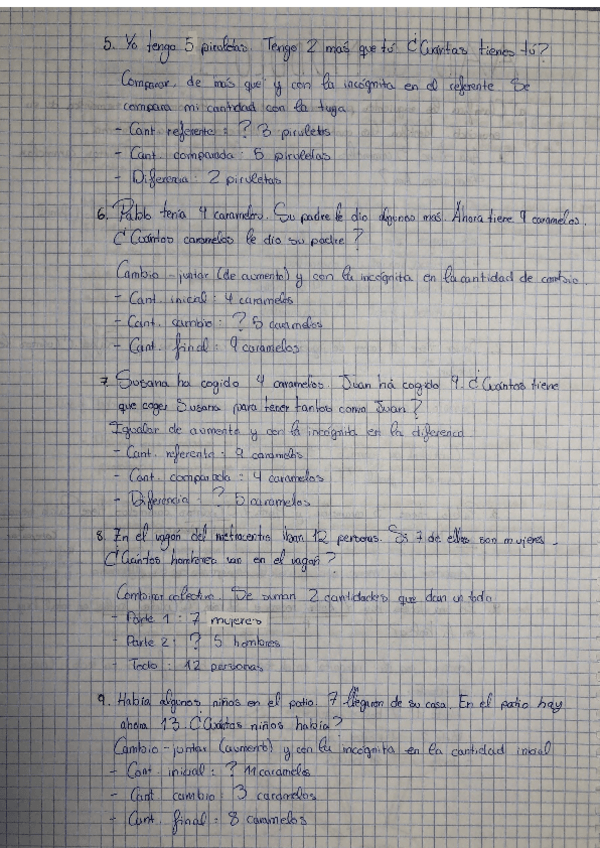 5. Yo tengo 5 piruletas. Tengo 2 más que tú ¿Cuántas tienes tú?
Comparar, de más que y con la incógnita en el referente. Se
compara mi cantidad con la tuya
- Cant referente : ? 3 piruletas
- Cant. comparada : 5 piruletas
- Diferencia : 2 piruletas
6. Pablo tenía 4 caramelos. Su padre le dio algunos mas. Ahora tiene 9 caramelos.
¿Cuántos caramelos le dio su padre?
Cambio - juntar (de aumento) y con la incógnita en la cantidad de cambio.
- Cant. inicial : 4 caramelos
- Cant. cambio : ? 5 caramelos
- Cant. final : 9 caramelos
7. Susana ha cogido 4 caramelos. Juan há cogido 9. ¿Cuántos tiene
que coger Susana para tener tantos como Juan?
Igualar de aumento y con la incógnita en la diferencia
- Cant. referente : 9 caramelos
- Cant. comparada : 4 caramelos
- Diferencia : ? 5 caramelos
8. En el vagón del metrocentro iban 12 personas. Si 7 de ellas son mujeres.
¿Cuántos hombres van en el vagón?
Combinar colectivo. Se suman 2 cantidades que dan un todo
- Parte 1 : 7 mujeres
- Parte 2 : ? 5 hombres
- Todo : 12 personas
9. Había algunos niños en el patio. 7 llegaron de su casa. En el patio hay
ahora 13. ¿Cuántos niños había?
Cambio - juntar (aumento) y con la incógnita en la cantidad inicial
- Cant. inicial : ? 11 caramelos
- Cant. cambio : 3 caramelos
- Cant. final : 8 caramelos